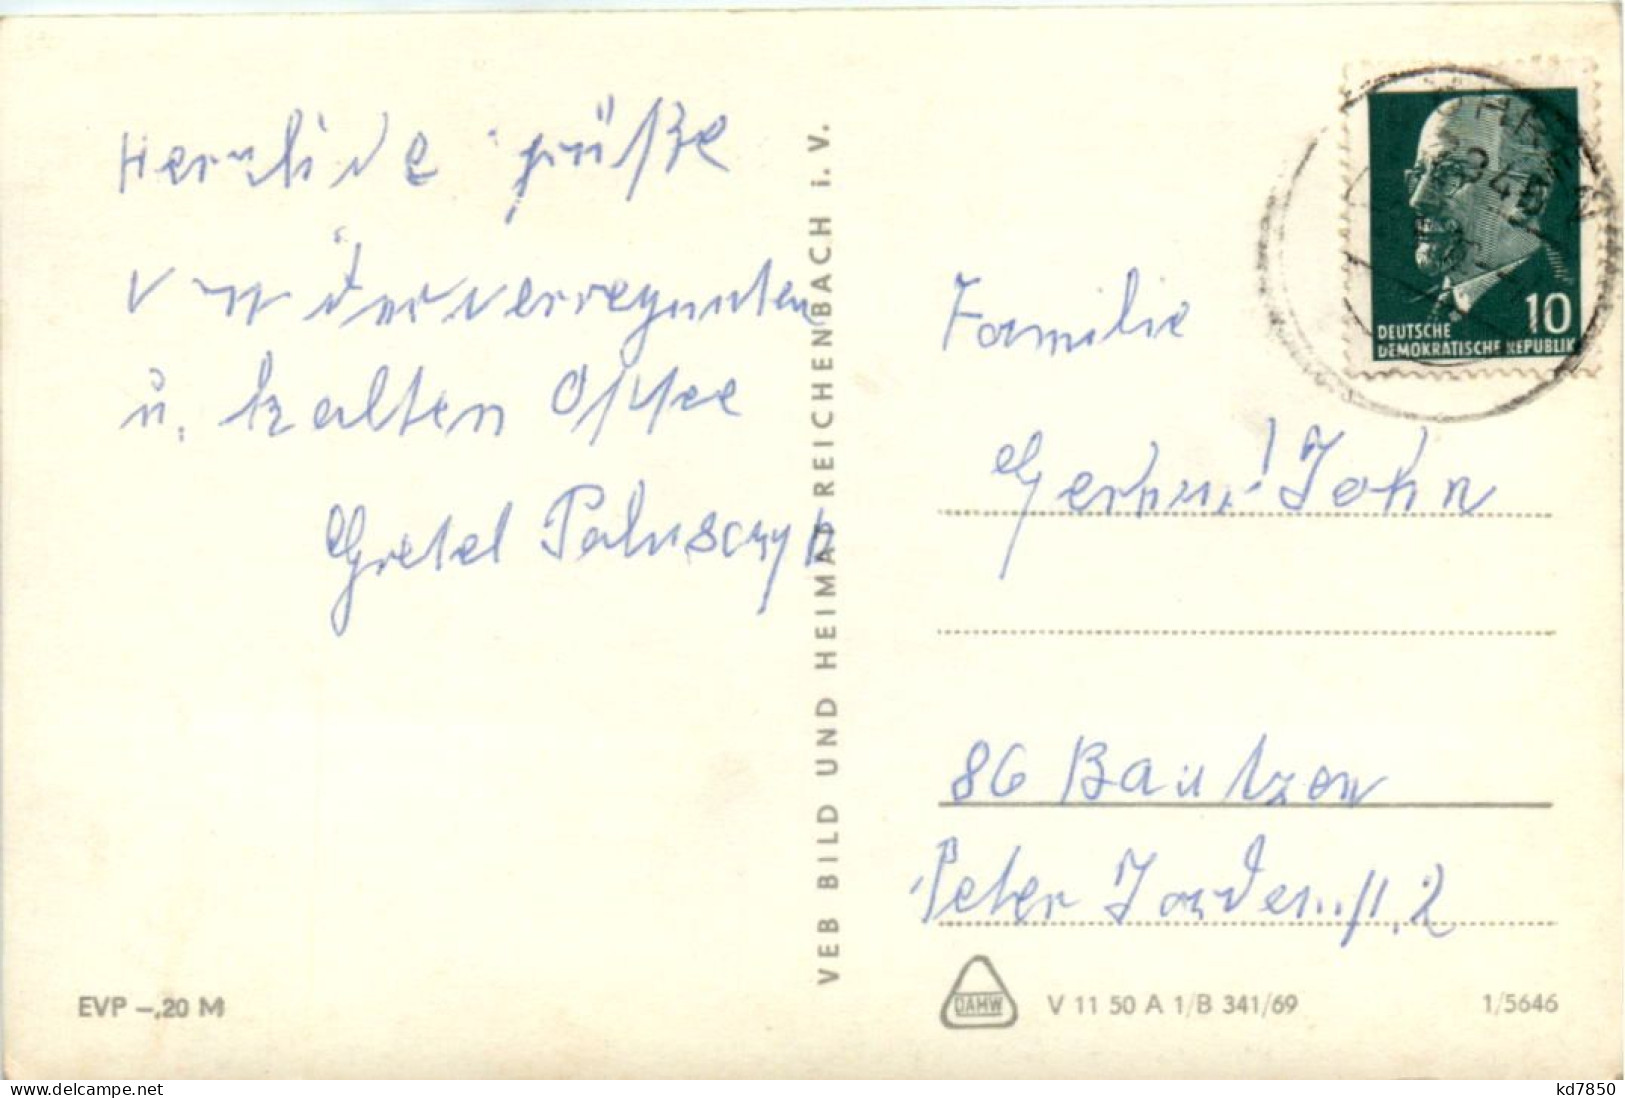 Herzliche Grüße
von der verregneten
u. kalten Ostsee
Gretel
VEB BILD UND HEIMAT REICHENBACH i. V.
10
DEUTSCHE
DEMOKRATISCHE REPUBLIK
Familie
John
86 Bautzen
Peter Jordanstr. 2
EVP –,20 M
DAMW
V 11 50 A 1/B 341/69
1/5646
delcampe.net
kd7850